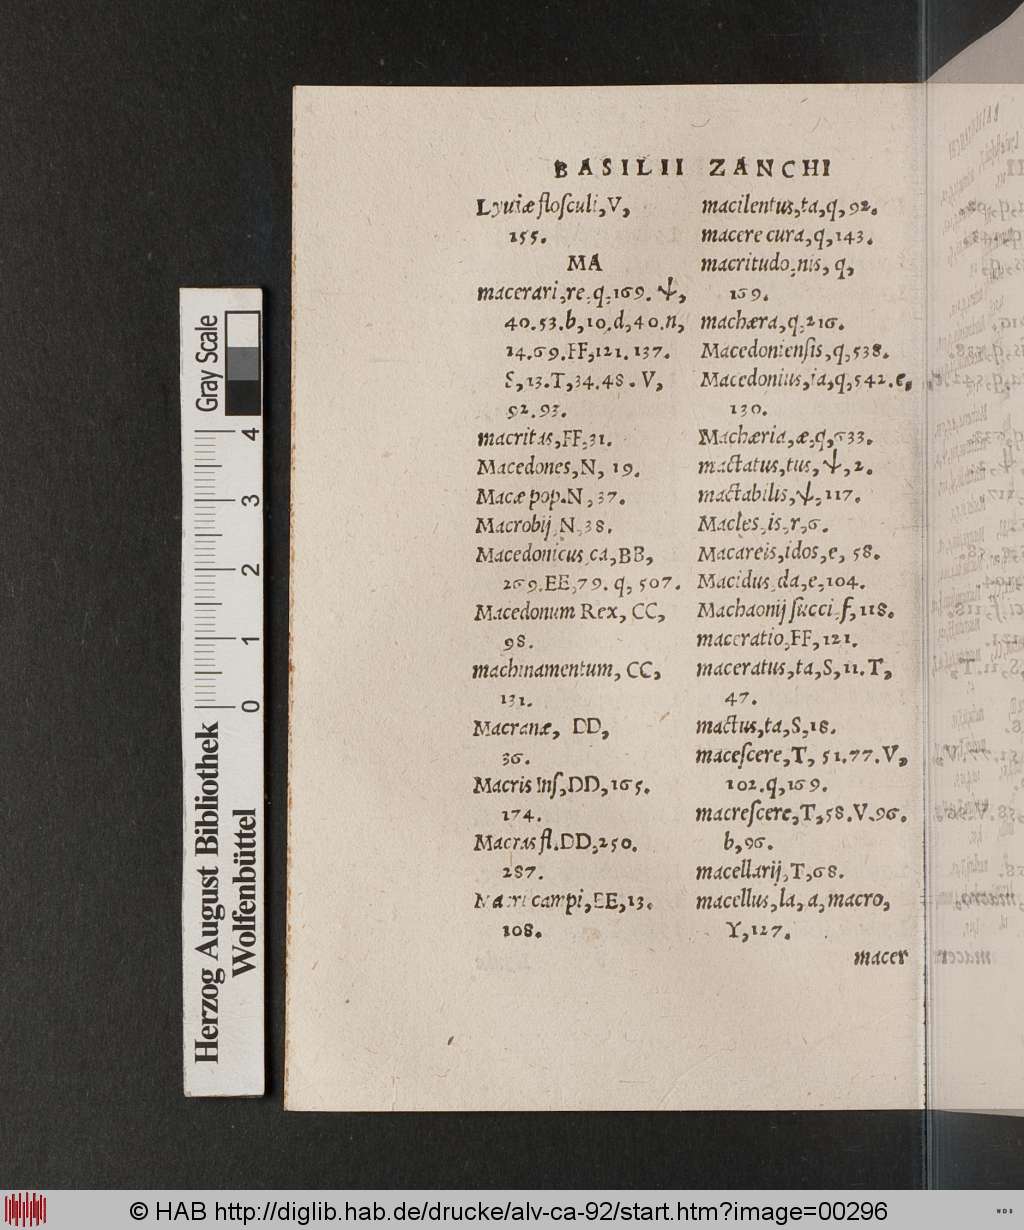 BASILII ZANCHI
Lyuiæ floſculi, V,
155.
MA
macerari, re, q, 169. Ψ,
40.53.b, 10.d, 40.n,
14.69.FF, 121.137.
S, 13.T, 34.48. V,
92.93.
macritas, FF, 31.
Macedones, N, 19.
Macæ pop. N, 37.
Macrobij, N, 38.
Macedonicus, ca, BB,
269.EE, 79. q, 507.
Macedonum Rex, CC,
98.
machinamentum, CC,
131.
Macranæ, DD,
36.
Macris Inſ, DD, 165.
174.
Macras fl. DD, 250.
287.
Macri campi, EE, 13.
108.
macilentus, ta, q, 92.
macere cura, q, 143.
macritudo, nis, q,
169.
machæra, q, 216.
Macedonienſis, q, 538.
Macedonius, ia, q, 542. e,
130.
Machæria, æ, q, 633.
mactatus, tus, Ψ, 2.
mactabilis, Ψ, 117.
Macles, is, r, 6.
Macareis, idos, e, 58.
Macidus, da, e, 104.
Machaonij ſucci, f, 118.
maceratio, FF, 121.
maceratus, ta, S, 11. T,
47.
mactus, ta, S, 18.
maceſcere, T, 51.77. V,
102.q, 169.
macreſcere, T, 58. V. 96.
b, 96.
macellarij, T, 68.
macellus, la, a, macro,
Y, 127.
macer
Gray Scale
4
3
2
1
0
Herzog August Bibliothek
Wolfenbüttel
© HAB http://diglib.hab.de/drucke/alv-ca-92/start.htm?image=00296